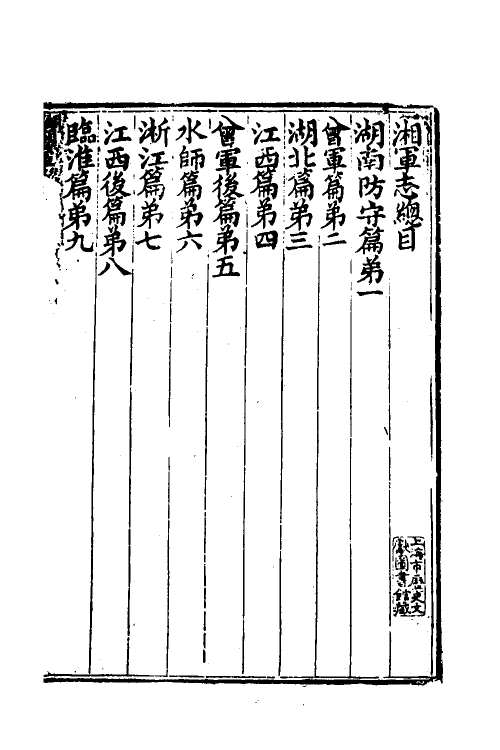 湘軍志總目
湖南防守篇弟一
曾軍篇弟二
湖北篇弟三
江西篇弟四
曾軍後篇弟五
水師篇弟六
浙江篇弟七
江西後篇弟八
臨淮篇弟九
上海市歷史文
獻圖書館藏